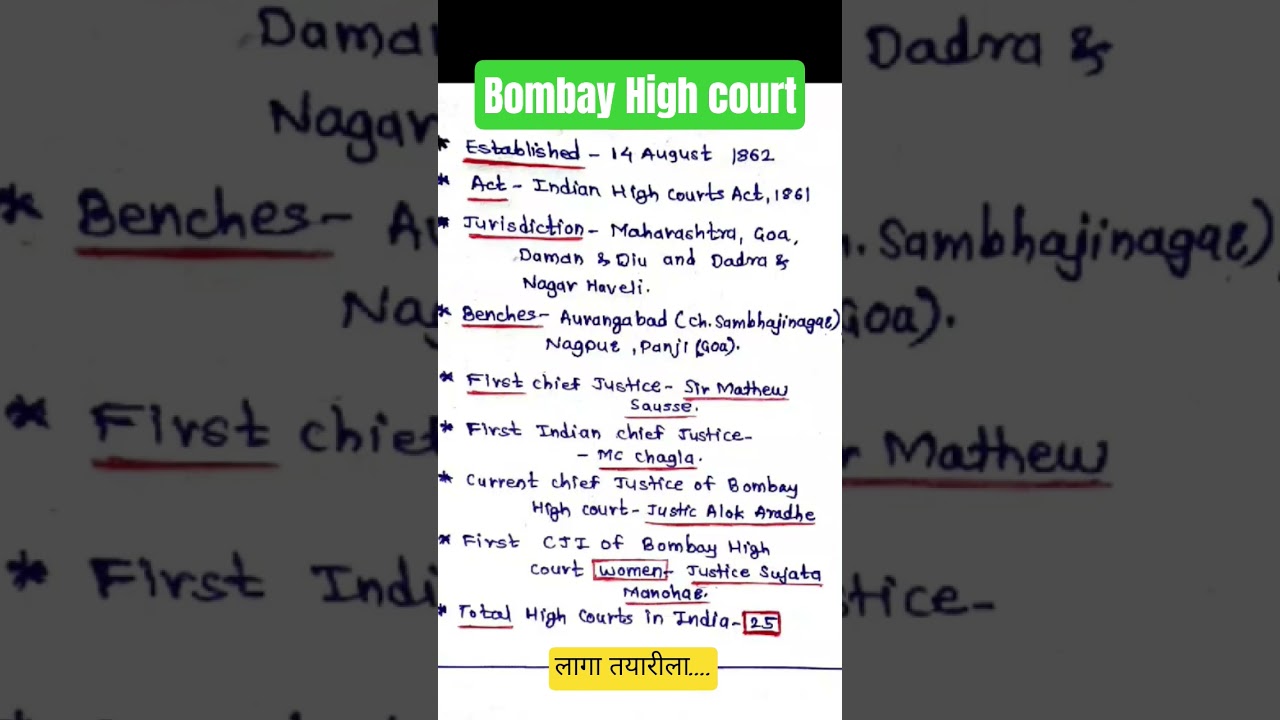 Bombay High court
* Established - 14 August 1862
* Act - Indian High Courts Act, 1861
* Jurisdiction - Maharashtra, Goa,
Daman & Diu and Dadra &
Nagar Haveli.
* Benches - Aurangabad (ch. Sambhajinagar)
Nagpur, Panji (Goa).
* First chief Justice - Sir Mathew
Sausse.
* First Indian chief Justice -
- MC chagla.
* Current chief Justice of Bombay
High court - Justic Alok Aradhe
* First CJI of Bombay High
court women - Justice Sujata
Manohar.
* Total High Courts in India - 25
लागा तयारीला....
Dama
Nagar
* Benches - Au
Na
* First chief
* First Indi
Dadra &
h. Sambhajinagar)
Goa).
r Mathew
stice -